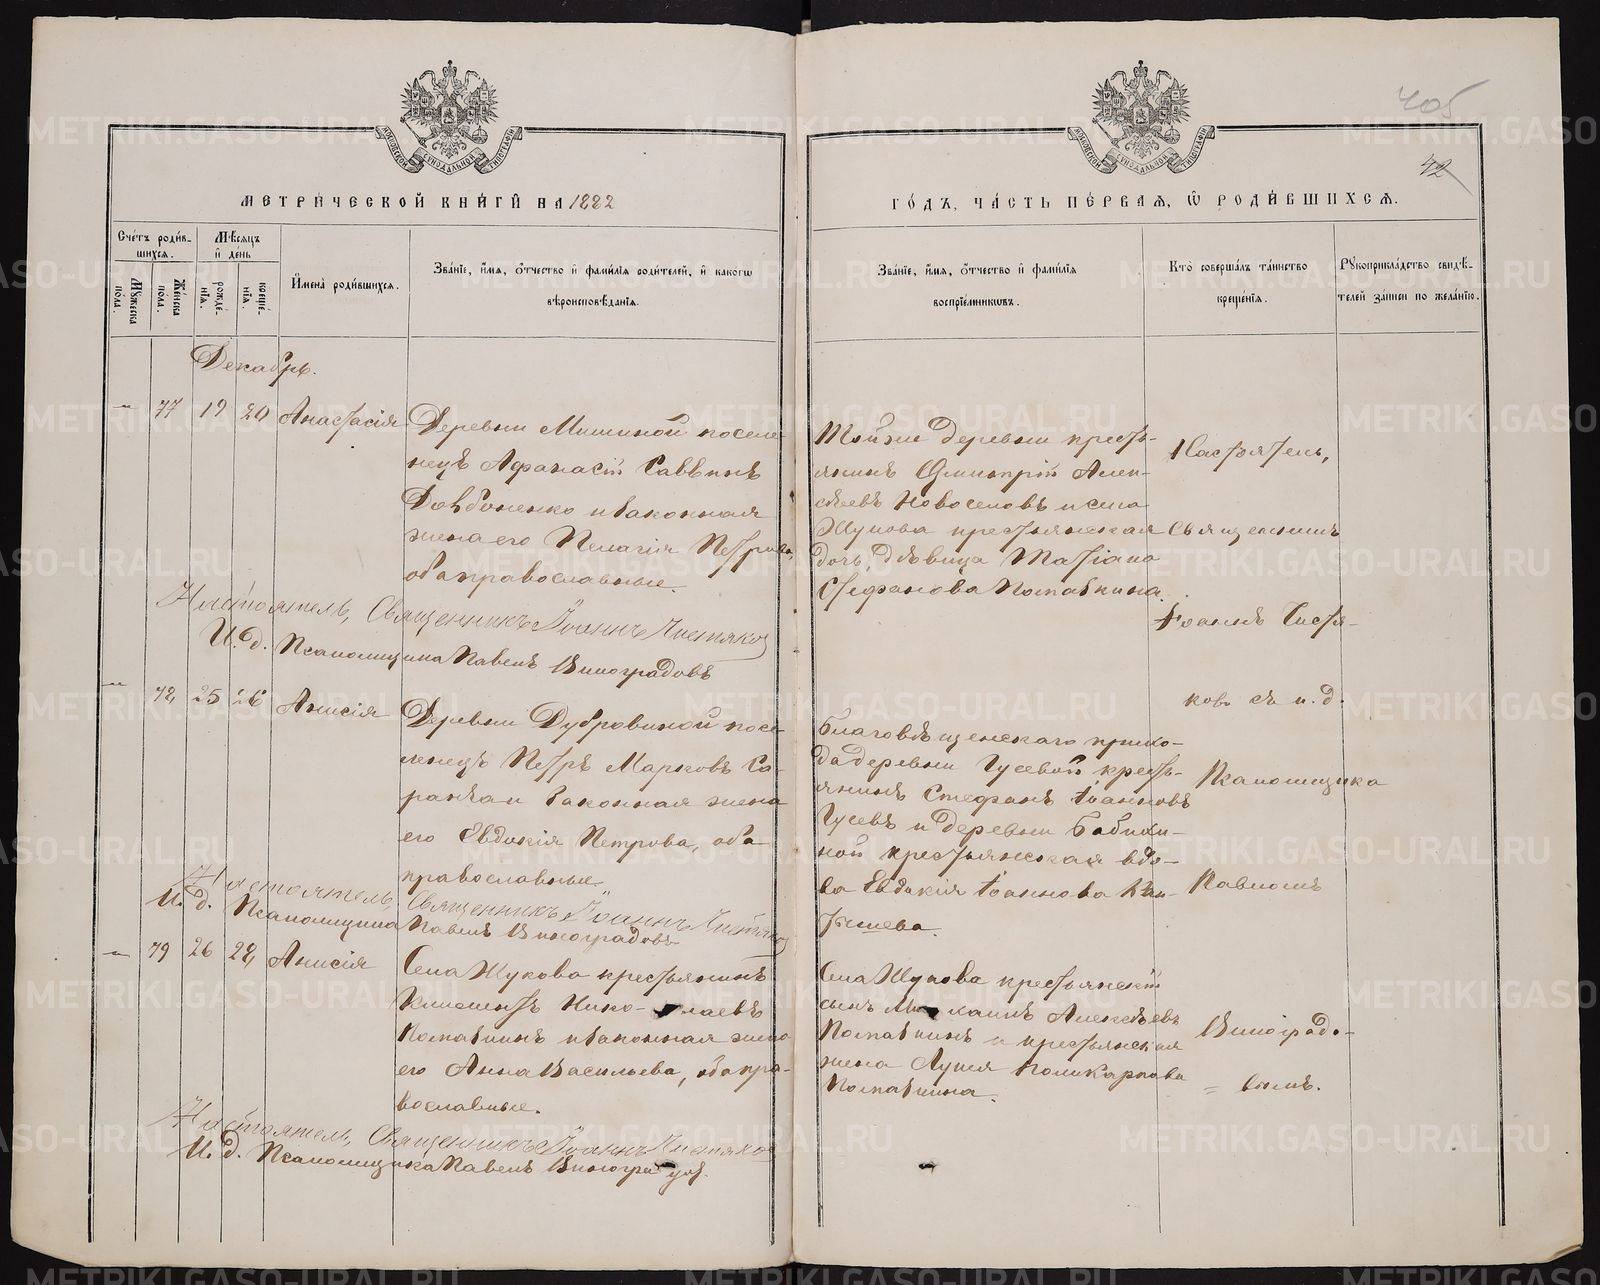 405
42
МЕТРИЧЕСКОЙ КНИГИ НА 1882
ГОДЪ, ЧАСТЬ ПЕРВАЯ, Ѡ РОДИВШИХСЯ.
Счетъ родив-
шихся.
Мужеска пола.
Женска пола.
Мѣсяцъ
и день
рожде-
нія.
креще-
нія.
Имена родившихся.
Званіе, имя, отчество и фамилія родителей, и какогѡ
вѣроисповѣданія.
Званіе, имя, отчество и фамилія
воспріемникѡвъ.
Кто совершалъ таинство
крещенія.
Рукоприкладство свидѣ-
телей записи по желанію.
Декабрь.
— 77 19 20 Анастасія
Деревни Мишиной поселе-
нецъ Афанасій Саввинъ
Довбоненко и законная
жена его Пелагія Петрова,
оба православные.
Тойже деревни кресть-
янинъ Димитрій Алек-
сѣевъ Новоселовъ и села
Жукова крестьянская
дочь, дѣвица Татіана
Стефанова Потапкина.
Настоятель, Священникъ Іоаннъ Чистяковъ
И. д. Псаломщика Павелъ Виноградовъ
— 78 25 26 Анисія
Деревни Дубровиной посе-
ленецъ Петръ Марковъ Са-
и законная жена
его Евдокія Петрова, оба
православные.
Благовѣщенскаго прихо-
да деревни Гусевой кресть-
янинъ Стефанъ Іоанновъ
Гусевъ и деревни Бабихи-
ной крестьянская вдо-
ва Евдокія Іоаннова
Настоятель, Священникъ Іоаннъ Чистяковъ
И. д. Псаломщика Павелъ Виноградовъ
— 79 26 28 Анисія
Села Жукова крестьянинъ
Климентъ Нико- лаевъ
и законная жена
его Анна Васильева, оба пра-
вославные.
Села Жукова крестьянскій
сынъ Ми хаилъ Алексѣевъ
и крестьянская
жена Поликарпова
Настоятель, Священникъ Іоаннъ Чистяковъ
И. д. Псаломщика Павелъ Виноградовъ.
Настоятель,
Священникъ
Іоаннъ Чистя-
ковъ съ и. д.
Псаломщика
Павломъ
Виноградо-
= вымъ.
METRIKI.GASO-URAL.RU